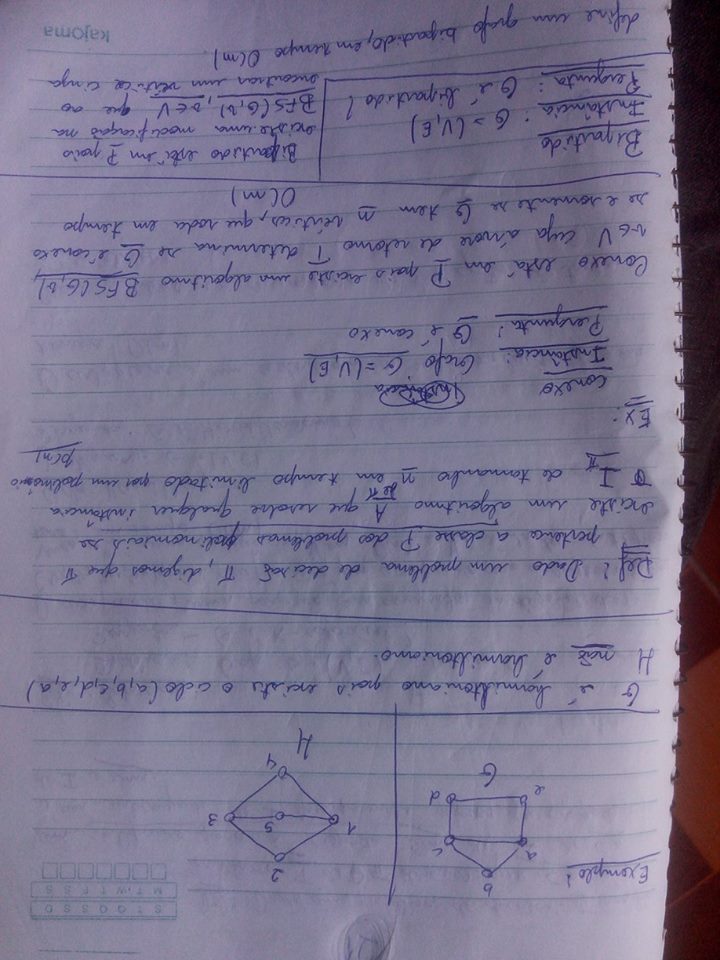 S T Q Q S S D
M T W T F S S
Exemplo:
b
a
c
e
d
G
2
1
5
3
4
H
G é hamiltoniano pois existe o ciclo (a,b,c,d,e,a)
H não é hamiltoniano.
Def: Dado um problema de decisão π, digemos que π
pertence a classe P dos problemas polinomiais se
existe um algoritmo A que resolve qualquer instância
I de π de tamanho n em tempo limitado por um polinômio
p(n)
Ex:
Conexo
Instância: Grafo G=(V,E)
Pergunta: G é conexo
Conexo está em P pois existe um algoritmo BFS(G,v),
v∈V cuja árvore de retorno T determina se G é conexo
se e somente se G tem n vértices, que roda em tempo
O(m)
Bipartido
Instância: G=(V,E)
Pergunta: G é bipartido?
Bipartido está em P pois
existe uma modificação na
BFS(G,v), v∈V que ao
encontrar um vértice cinza
define um grafo bipartido, em tempo O(m).
kajoma